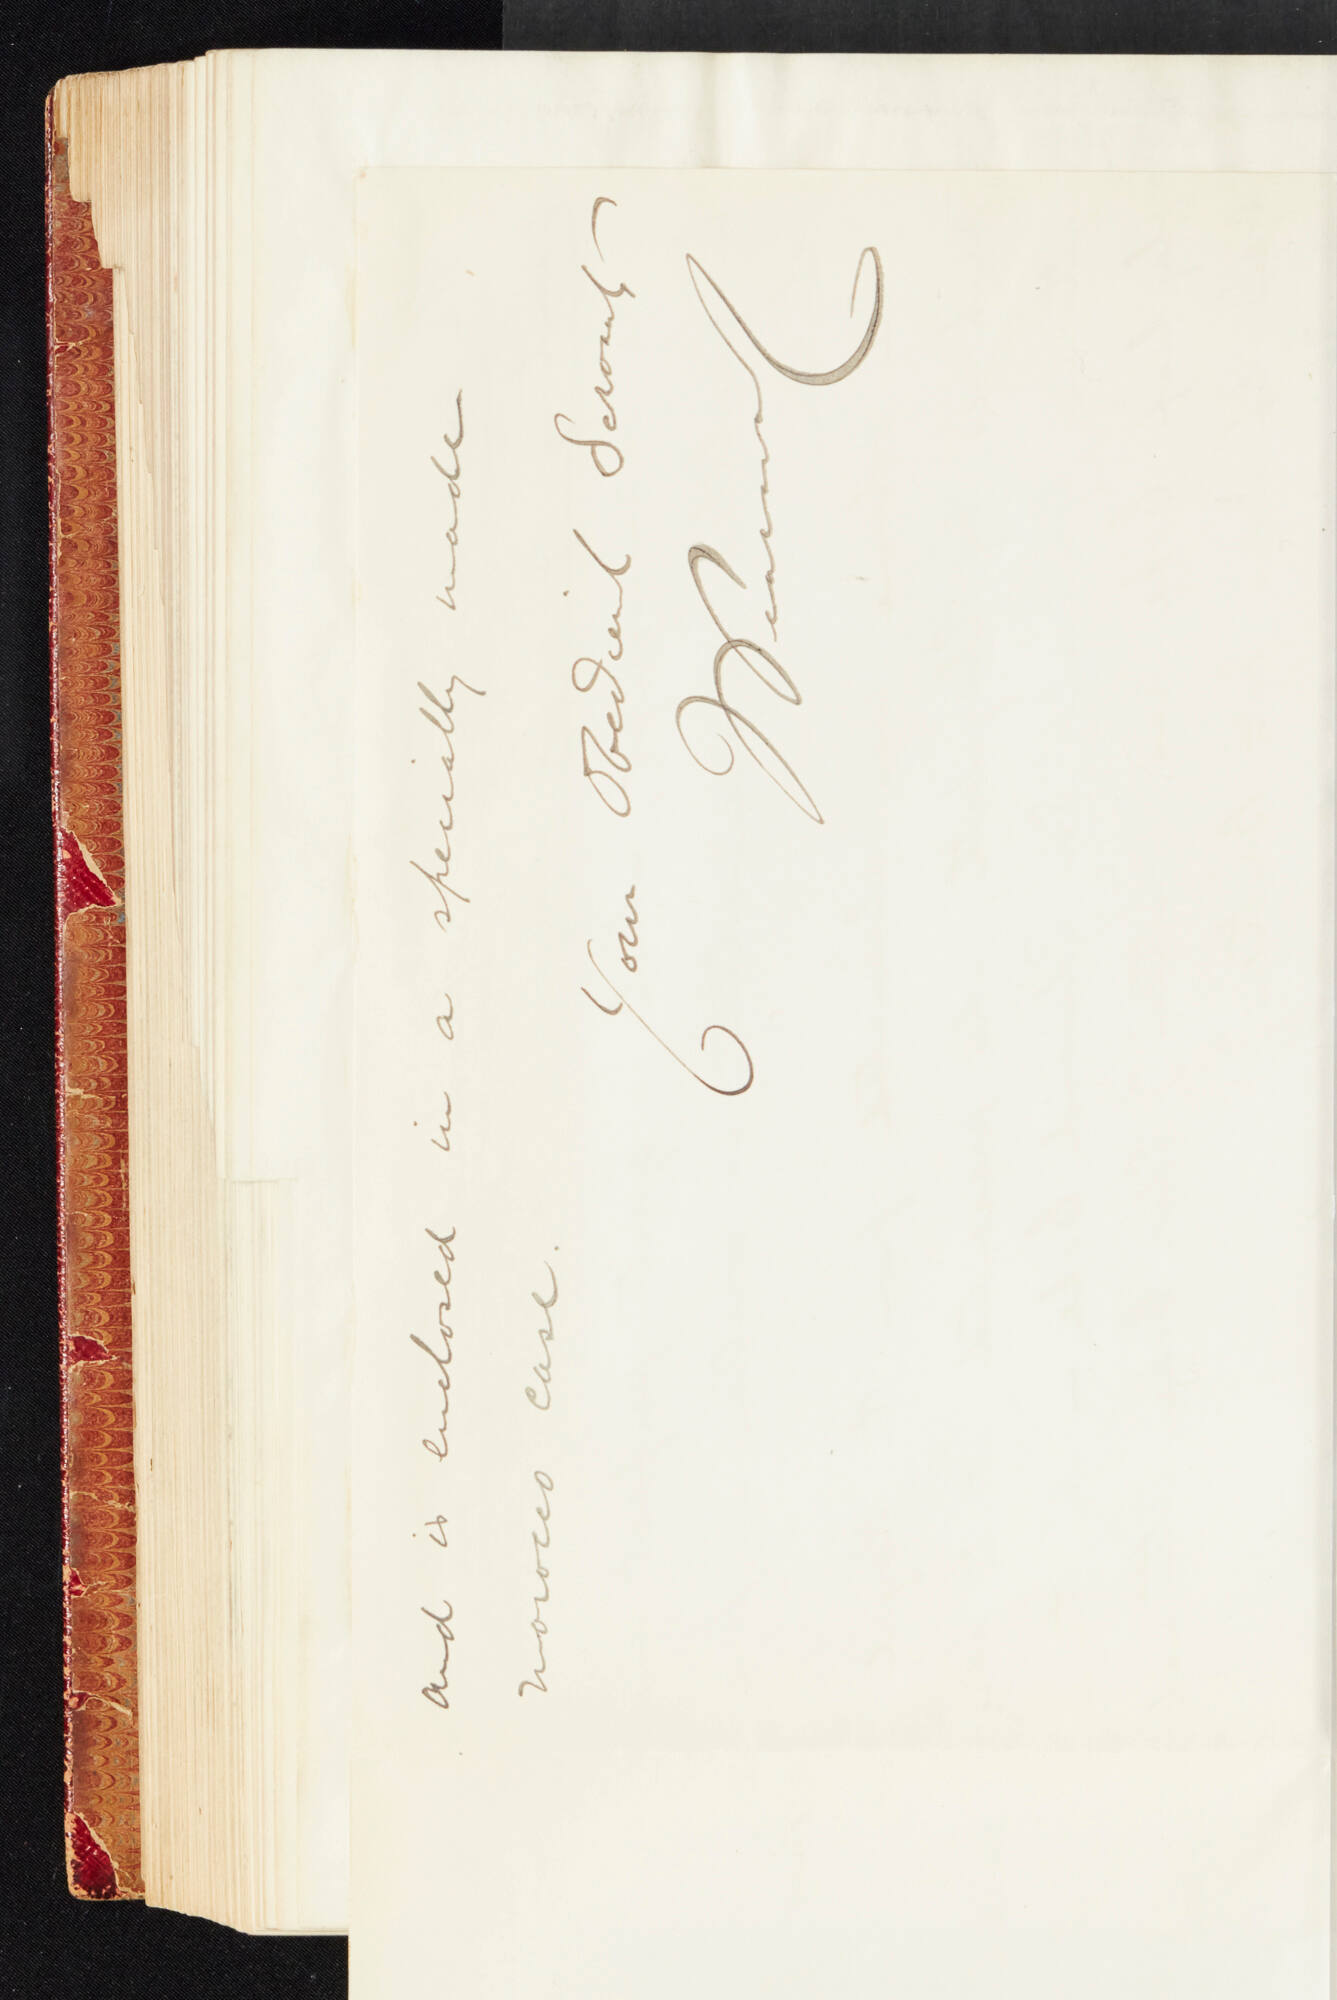 and is enclosed in a specially made
morocco case.
Your Obedient Servant